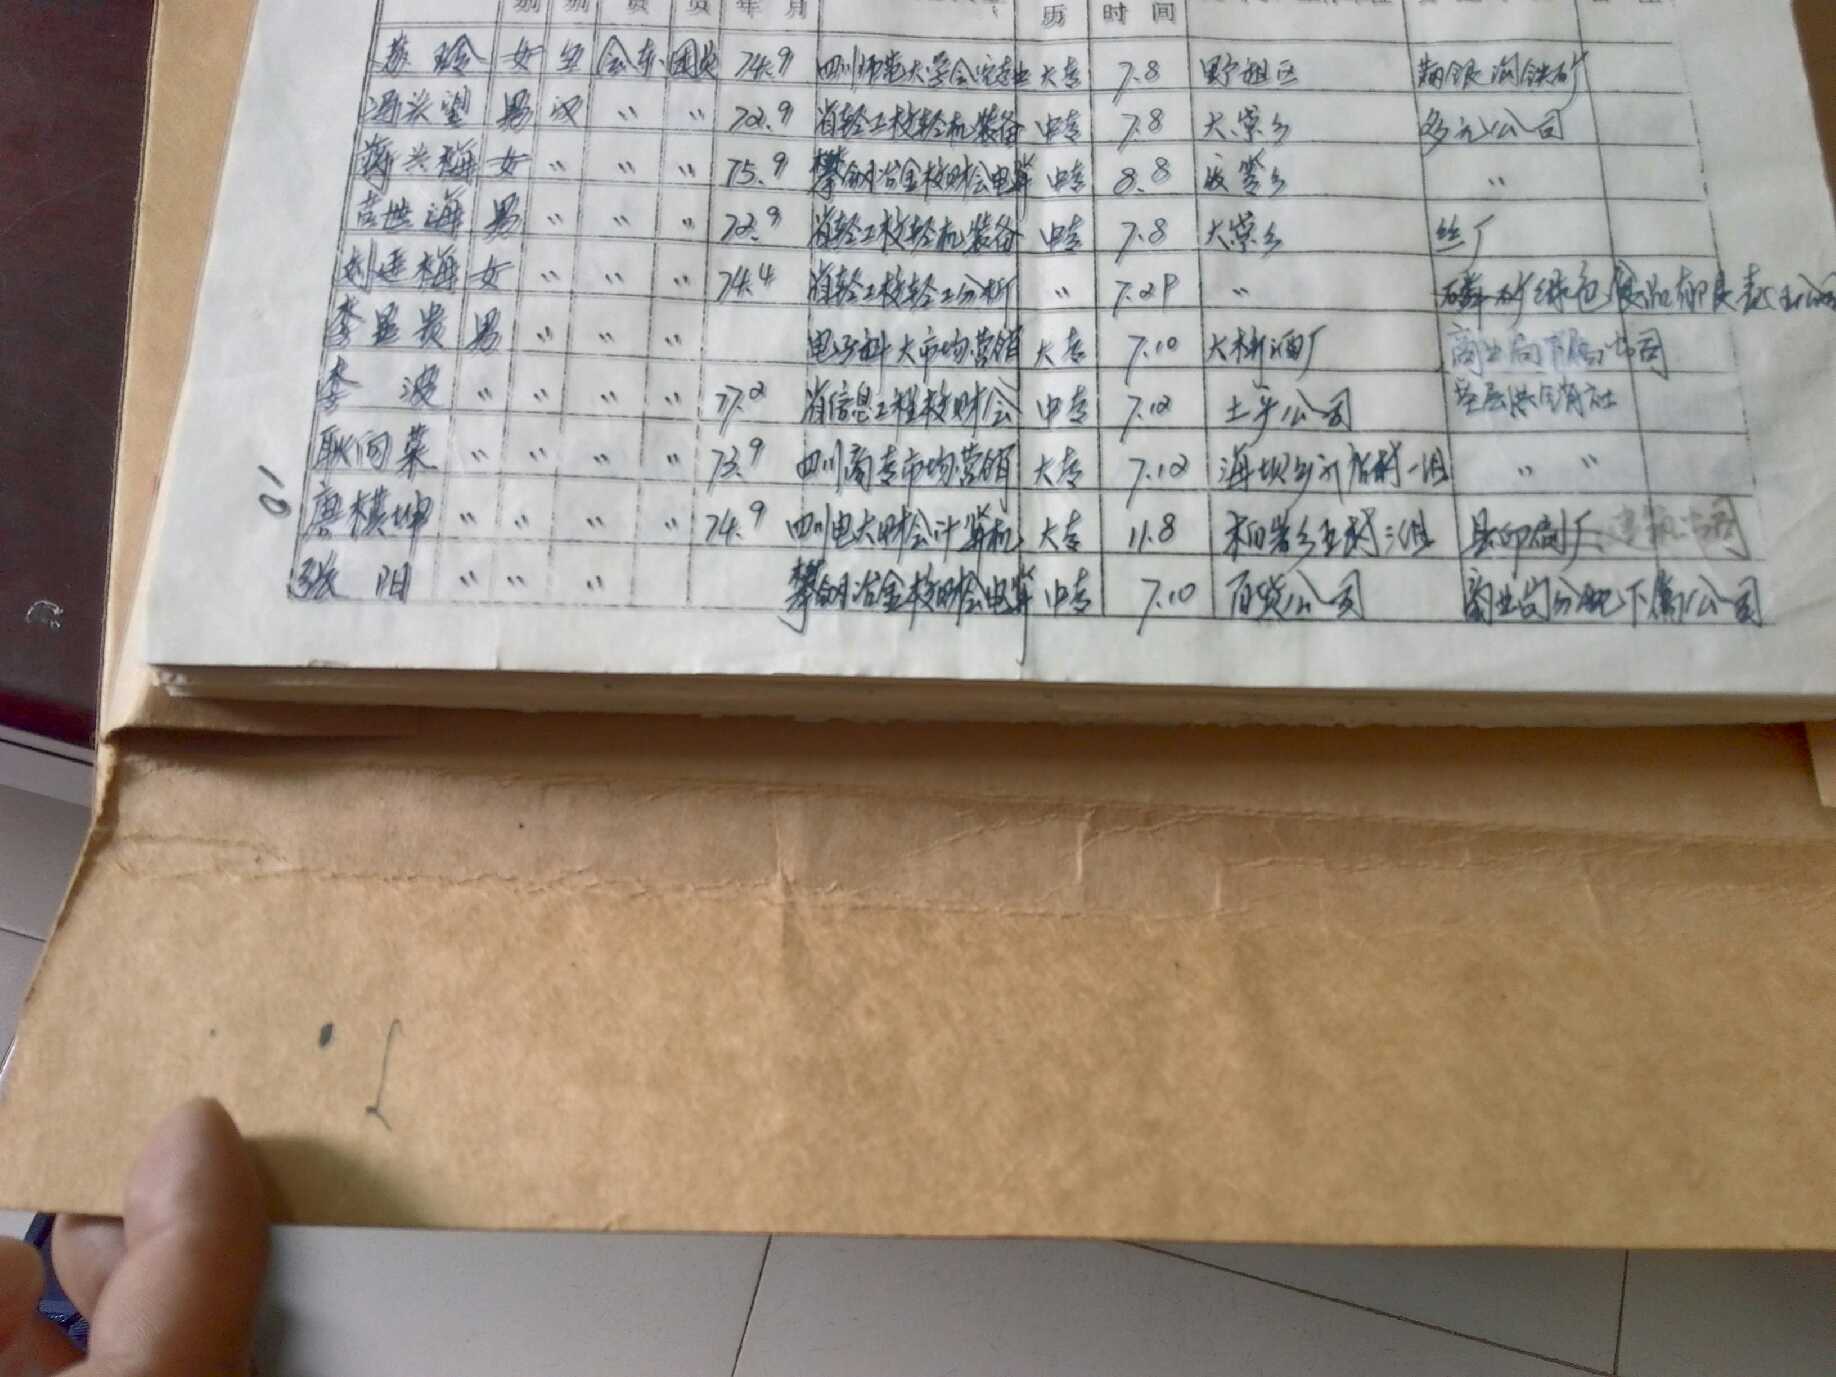 别 别 贯 员 年 月 历 时 间
苏 玲 女 会东 团员 74.9 四川师范大学会定专业 大专 7.8 野租区 满银沟铁矿
冯兴望 男 汉 〃 〃 72.9 省轻工校轻机装备 中专 7.8 大崇乡 多元公司
蒋兴梅 女 〃 〃 〃 75.9 攀钢冶金校财会电算 中专 8.8 〃
吉世海 男 〃 〃 〃 72.9 省轻工校轻机装备 中专 7.8 大崇乡 丝厂
刘廷梅 女 〃 〃 〃 74.4 省轻工校轻工分析 〃 7.29 〃 磷矿
李显贵 男 〃 〃 〃 电子科大市场营销 大专 7.10 大桥酒厂 商业局下属公司
李 波 〃 〃 〃 〃 77.2 省信息工程校财会 中专 7.12 土产公司 基层供销社
耿向荣 〃 〃 〃 〃 73.9 四川商专市场营销 大专 7.12 海坝乡 村一组 〃 〃
唐模坤 〃 〃 〃 〃 74.9 四川电大财会计算机 大专 11.8 柏岩乡 村三组 县印刷厂 建筑公司
张 阳 〃 〃 〃 攀钢冶金校财会电算 中专 7.10 百货公司 商业局分配下属公司
10